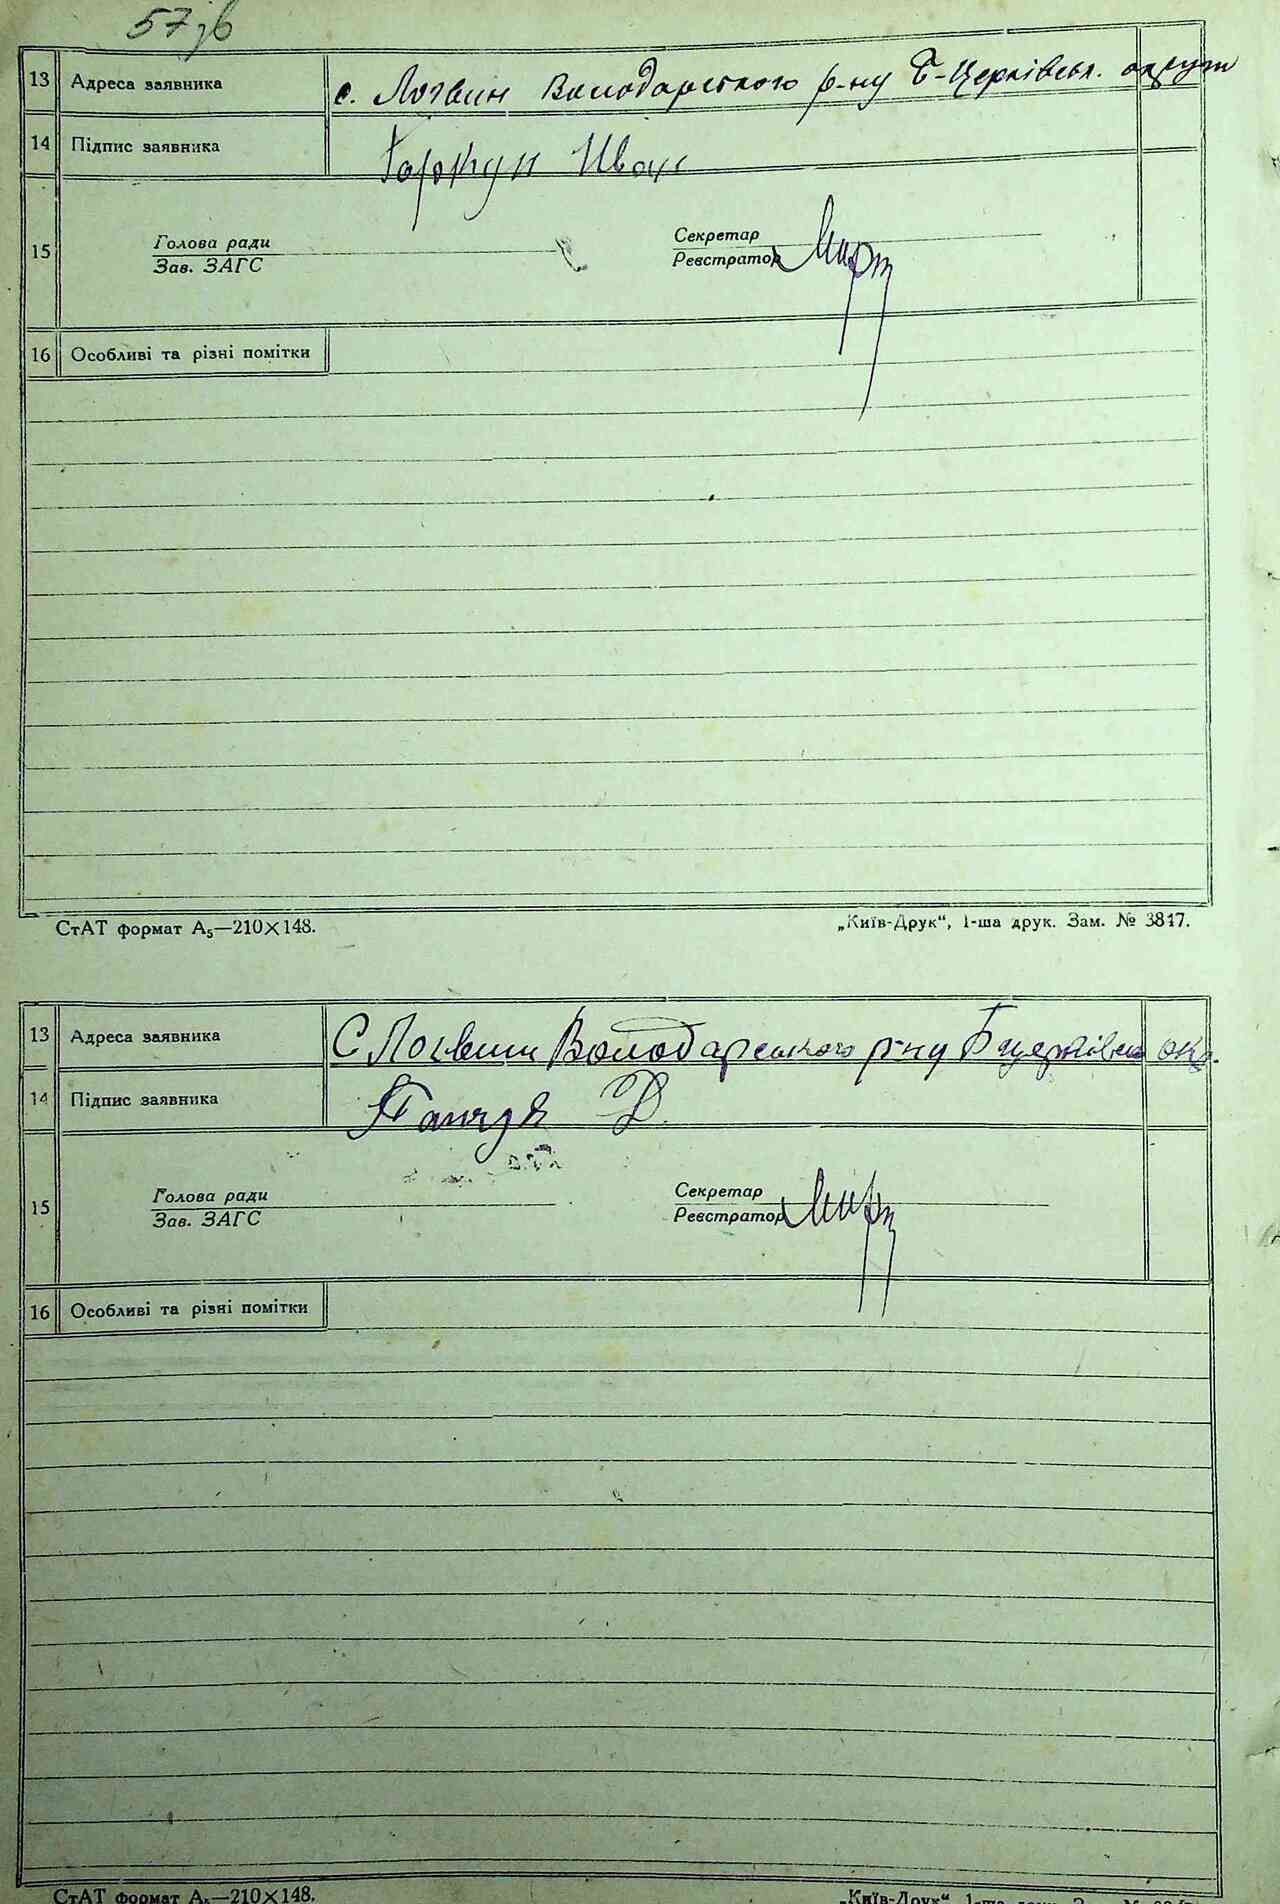 57зв
13 Адреса заявника с. Логвин Володарського р-ну Б-Церківськ. округи
14 Підпис заявника Горкун Иван
15 Голова ради Секретар
Зав. ЗАГС Реєстратор
16 Особливі та різні помітки
СтАТ формат А5—210×148. „Київ-Друк“, 1-ша друк. Зам. № 3847.
13 Адреса заявника С Логвин Володарського р-ну Бцерківськ окр.
14 Підпис заявника Д.
15 Голова ради Секретар
Зав. ЗАГС Реєстратор
16 Особливі та різні помітки
СтАТ формат А5—210×148. „Київ-Друк“, 1-ша друк.